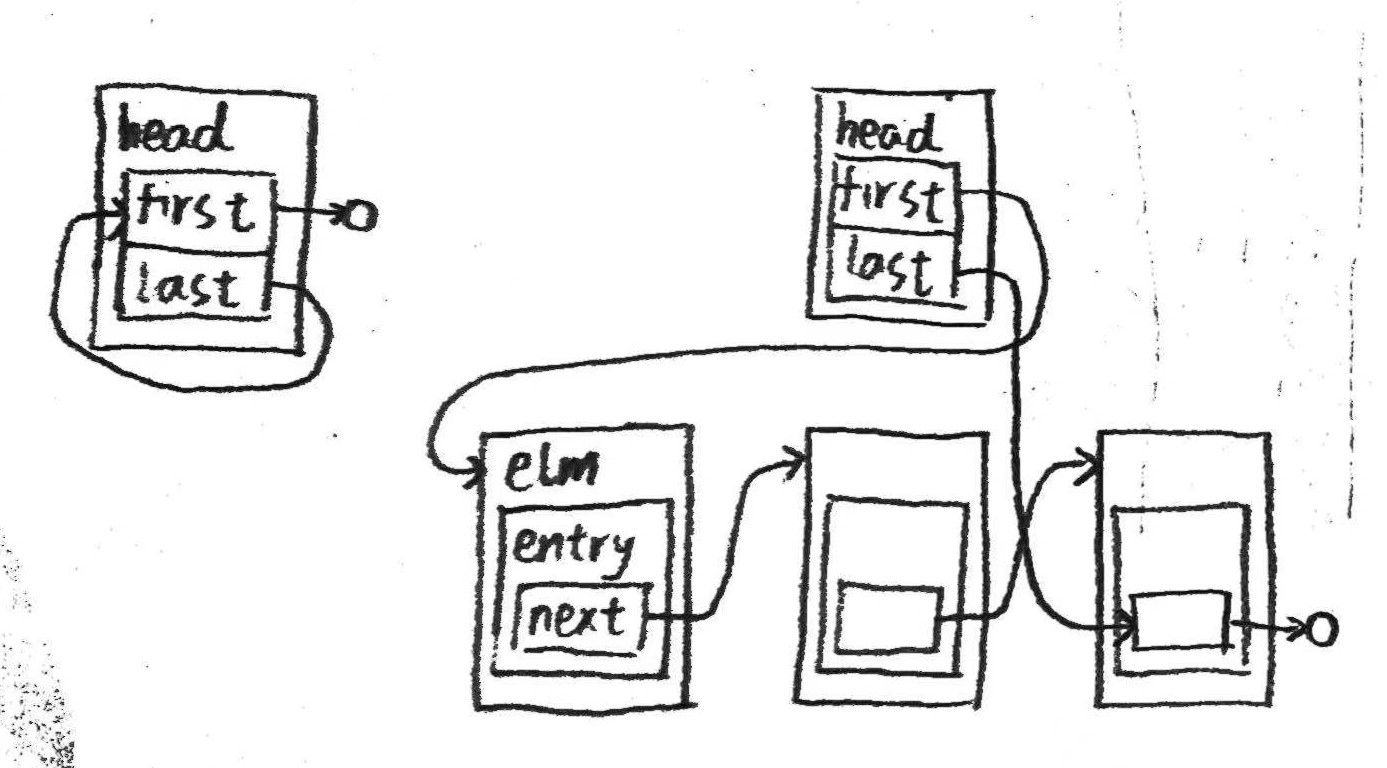 head
first
last
head
first
last
elm
entry
next